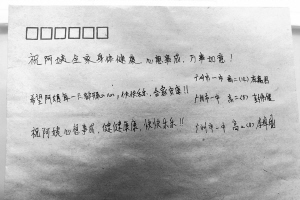 祝阿姨全家身体健康 心想事成，万事如意！
广州市一中 高二(4)
希望阿姨每一天 快快乐乐，合家安康!!
广州市一中 高二(5)
祝阿姨心想事成，健健康康，快快乐乐!!
广州市一中 高二(8)